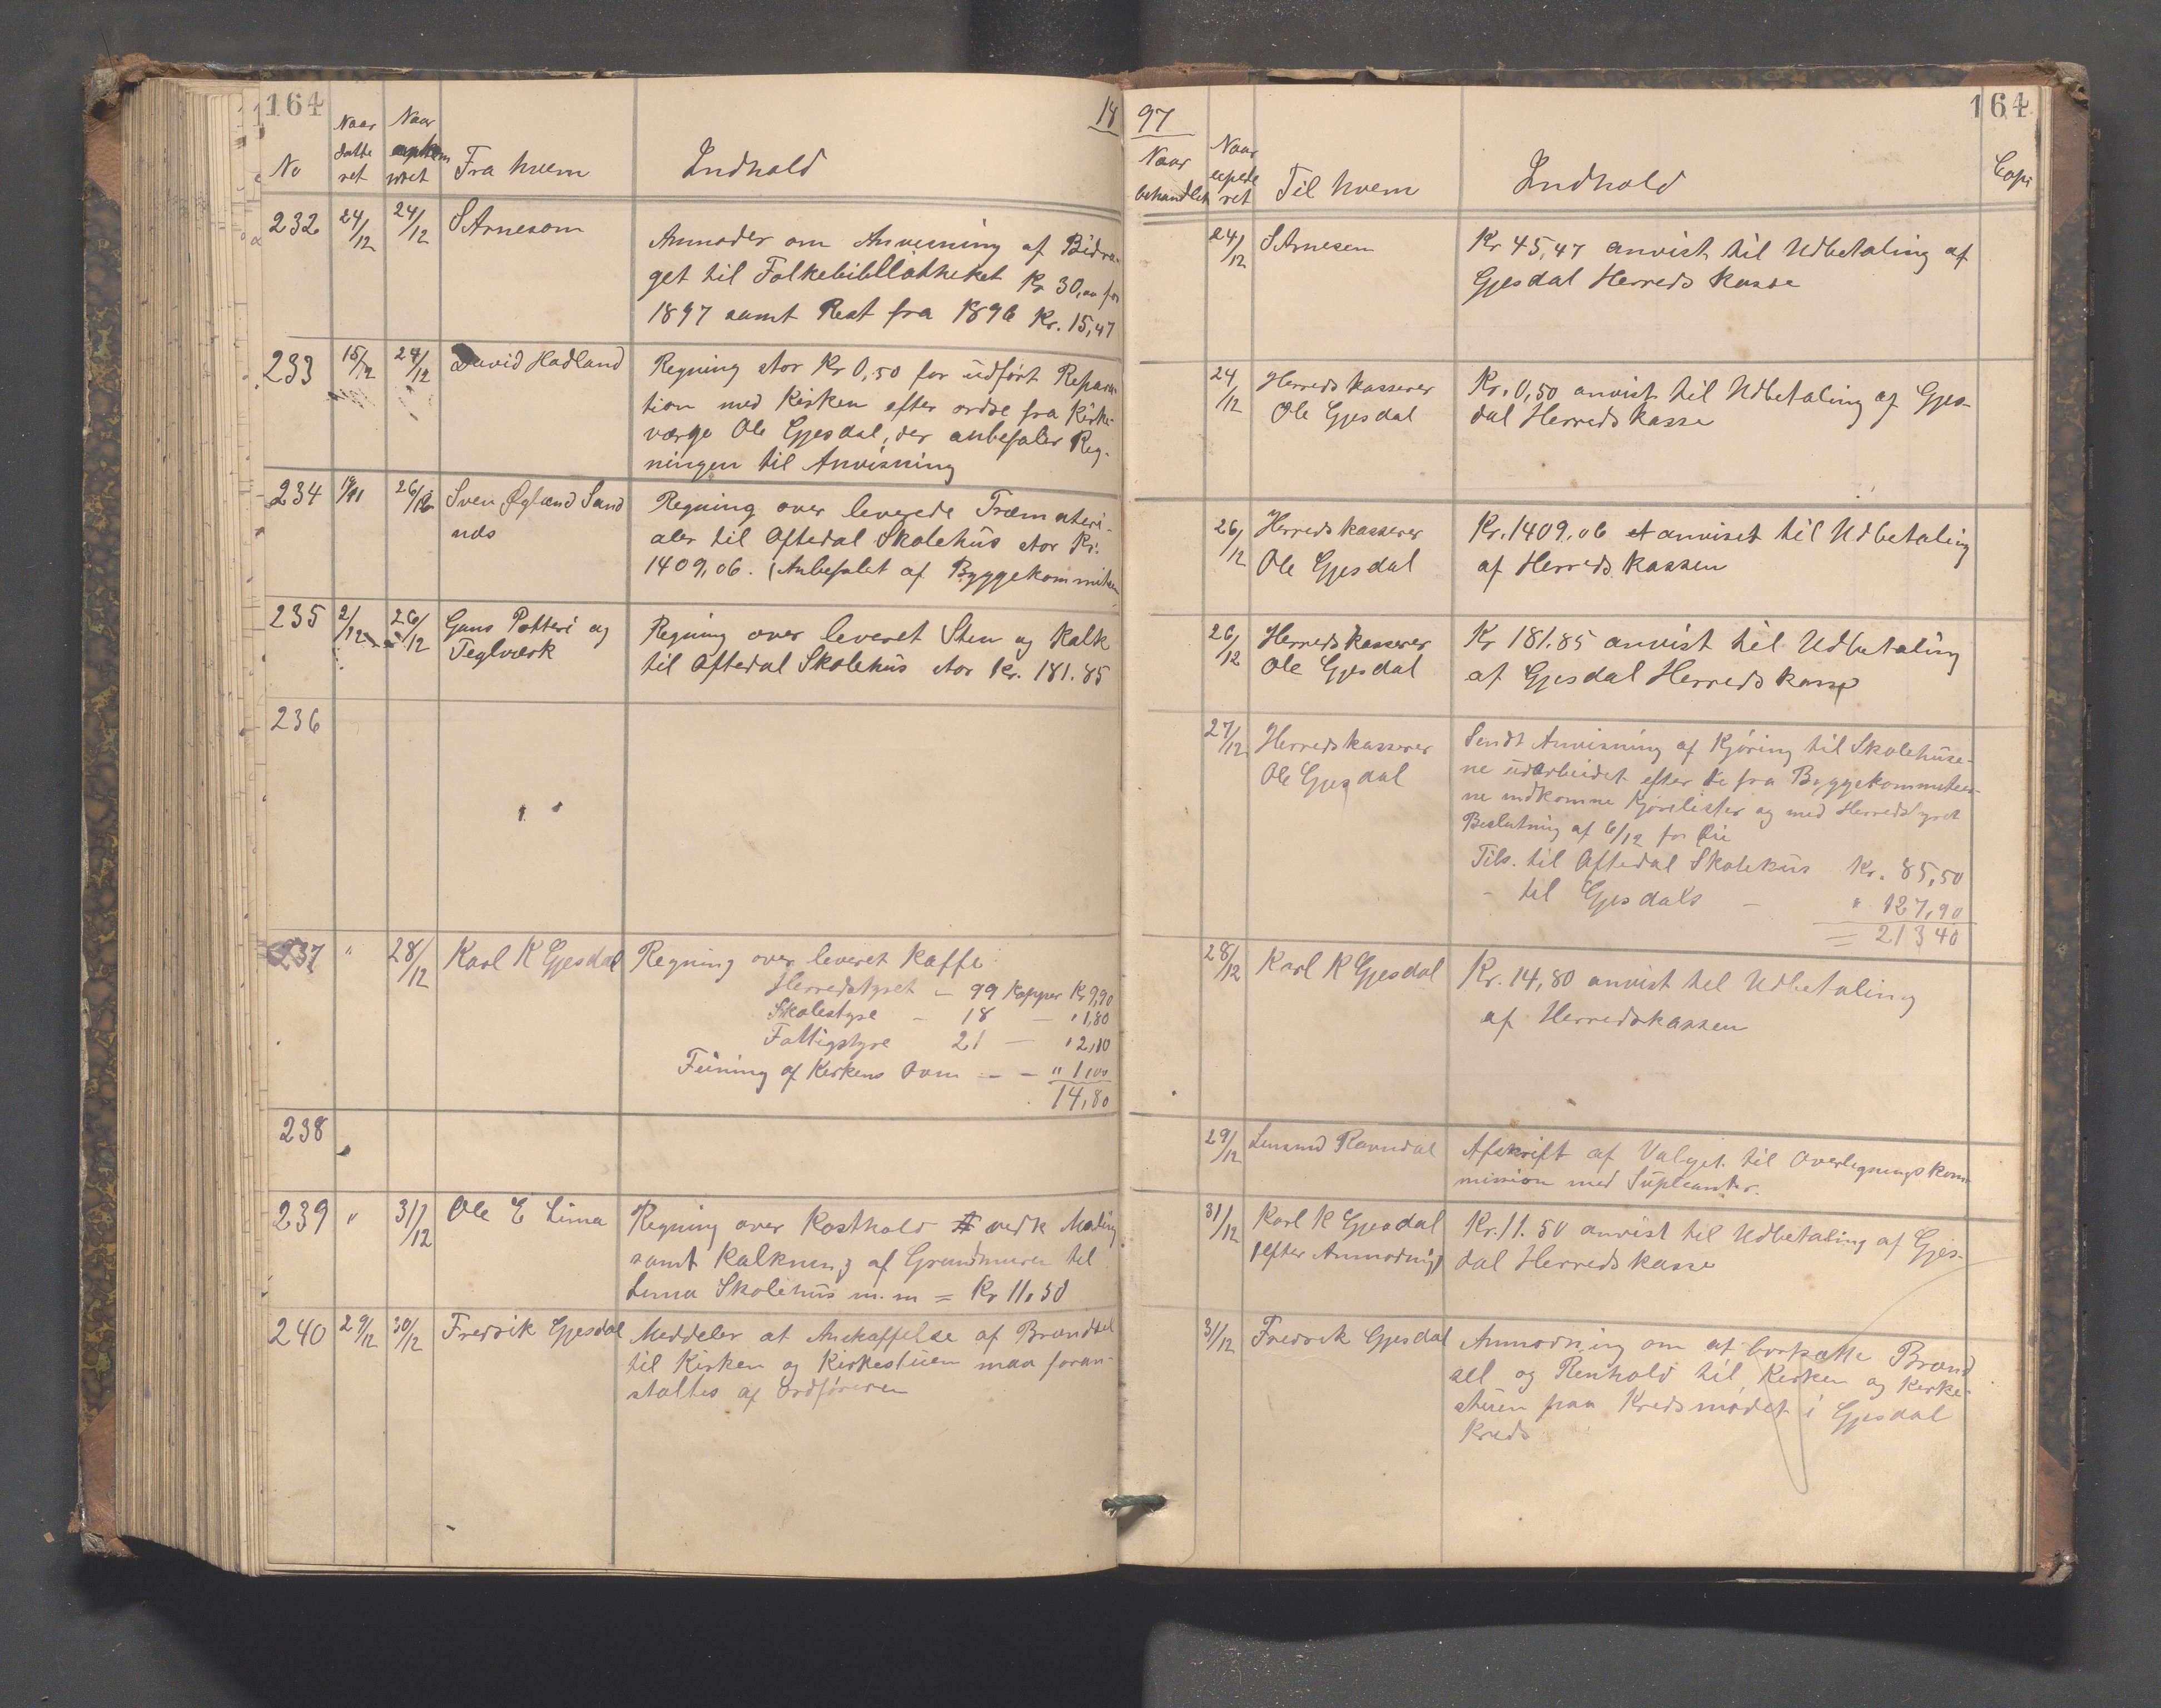 164
18
No
Naar datte ret
Naar
Fra hvem
Indhold
232
24/12
24/12
S Arnesom
Anmoder om Anvisning af Bidra-
get til Folkebibliotheket Kr 30,00 for
1897 samt Rest fra 1896 Kr. 15,47
233
15/12
24/12
David Hadland
Regning stor Kr 0,50 for udført Repara
tion med Kirken efter ordre fra Kirke-
værge Ole Gjesdal, der anbefaler Reg-
ningen til Anvisning
234
26/12
Sven Øgland Sand
nds
Regning over leverede Træmateri-
aler til Oftedal Skolehus stor Kr.
1409,06. (Anbefalet af Byggekommiteen
235
2/12
26/12
Gans Potteri og
Teglværk
Regning over leveret Sten og Kalk
til Oftedal Skolehus stor Kr. 181.85
236
237
"
28/12
Karl K Gjesdal
Regning over leveret Kaffe
Herredstyret - 99 Kopper Kr 9,90
Skolestyre - 18 - " 1,80
Fattigstyre 21 - " 2,10
Feining af Kirkens Ovn - - " 1,00
14,80
238
239
"
31/12
Ole E Lima
Regning over Kosthold vedk Maling
samt Kalkning af Grundmuren til
Lima Skolehus m.m = Kr 11,50
240
29/12
30/12
Fredrik Gjesdal
Meddeler at Anskaffelse af Brændsel
til Kirken og Kirkestuen maa foran-
staltes af Ordføreren
97
164
Naar behandlet
Naar expede ret
Til hvem
Indhold
Copi
24/12
S Arnesen
Kr 45,47 anvist til Udbetaling af
Gjesdal Herreds kasse
24/12
Herreds kasserer
Ole Gjesdal
Kr. 0,50 anvist til Udbetaling af Gjes-
dal Herreds kasse
26/12
Herreds kasserer
Ole Gjesdal
Kr. 1409.06 anviset til Udbetaling
af Herreds kassen
26/12
Herreds kasserer
Ole Gjesdal
Kr 181.85 anvist til Udbetaling
af Gjesdal Herreds kasse
27/12
Herreds kasserer
Ole Gjesdal
Sendt Anvisning af Kjøring til Skolehuse-
ne udarbeidet efter de fra Byggekommiteer-
ne indkomne Kjørelister og med Herredstyret
Beslutning af 6/12 for Øie
Tils. til Oftedal Skolehus Kr. 85,50
- til Gjesdals - " 127,90
= 213 40
28/12
Karl K Gjesdal
Kr. 14,80 anvist til Udbetaling
af Herredskassen
29/12
Ravndal
Afskrift af Valget til Overligningskom
mission med Supleanter.
31/12
Karl K Gjesdal
(efter Anmodning)
Kr. 11.50 anvist til Udbetaling af Gjes-
dal Herreds kasse
31/12
Fredrik Gjesdal
Anmodning om at bortsætte Brænd
sel og Renhold til Kirken og Kirke-
stuen paa Kredsmødet i Gjesdal
Kreds